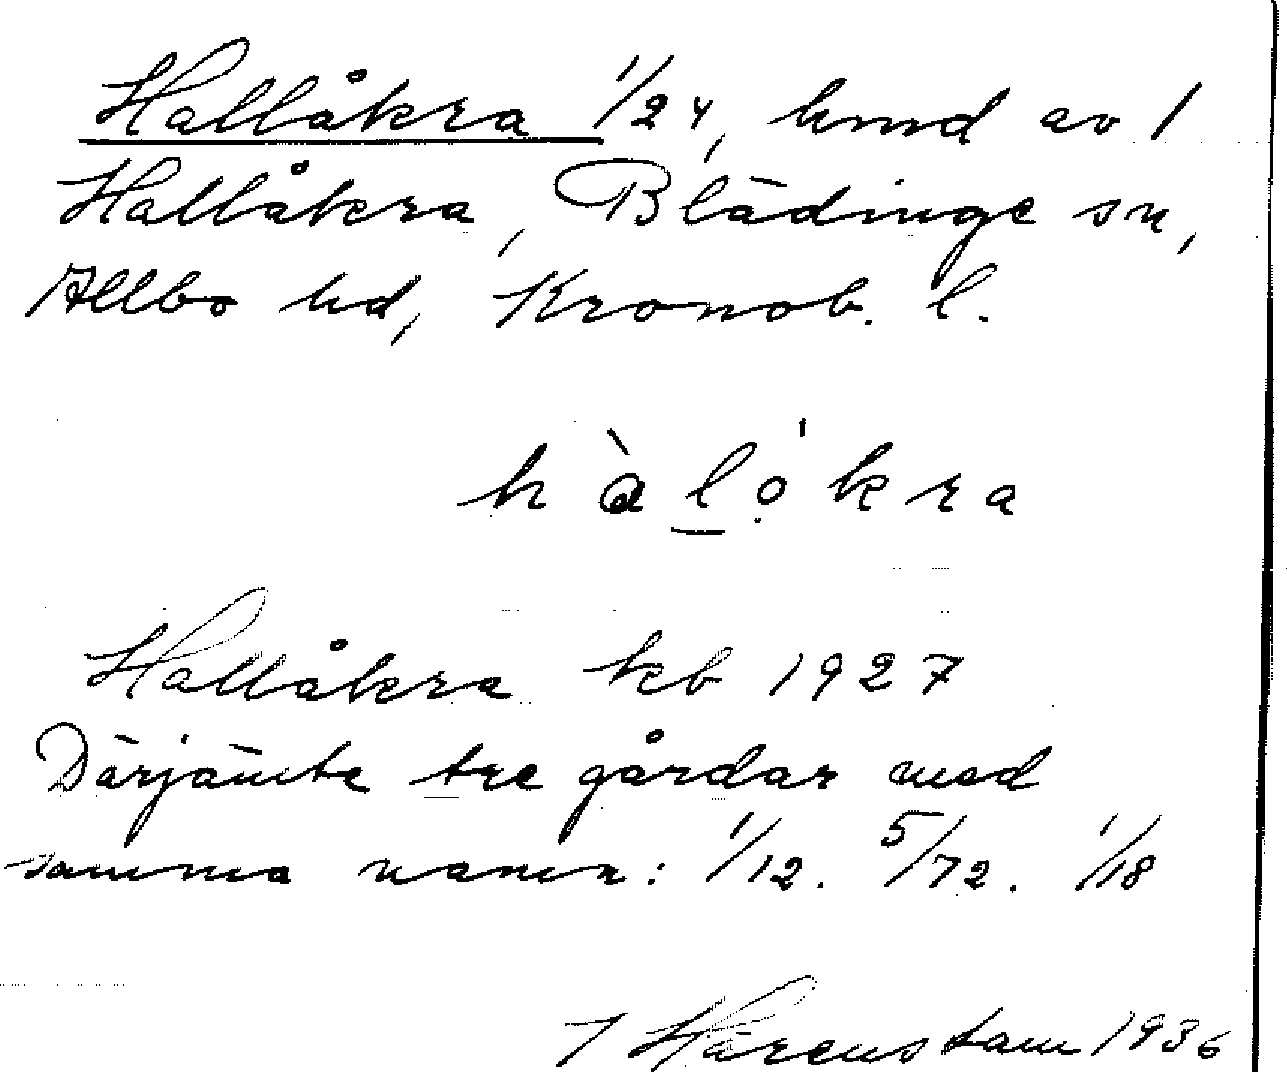 Hallåkra 1/24, hmd av 1
Hallåkra, Blädinge sn,
Allbo hd, Kronob. l.
hàlọ́kra
Hallåkra kb 1927
Därjämte tre gårdar med
samma namn: 1/12. 5/72. 1/18
J Hårenstam 1936